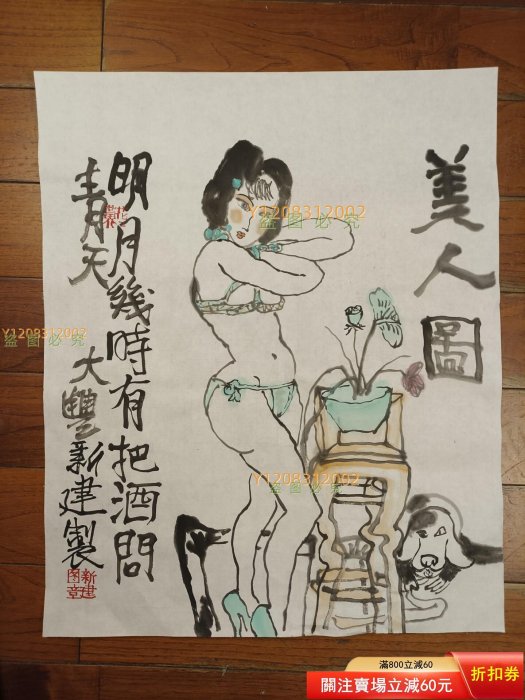 美人圖
明月幾時有把酒問
青天
大豐新建製
新建
图章
Y1208312002
盜圖必究
Y1208312002
盜圖必究
Y1208312002
盜圖必究
滿800立減60
關注賣場立減60元
折扣券